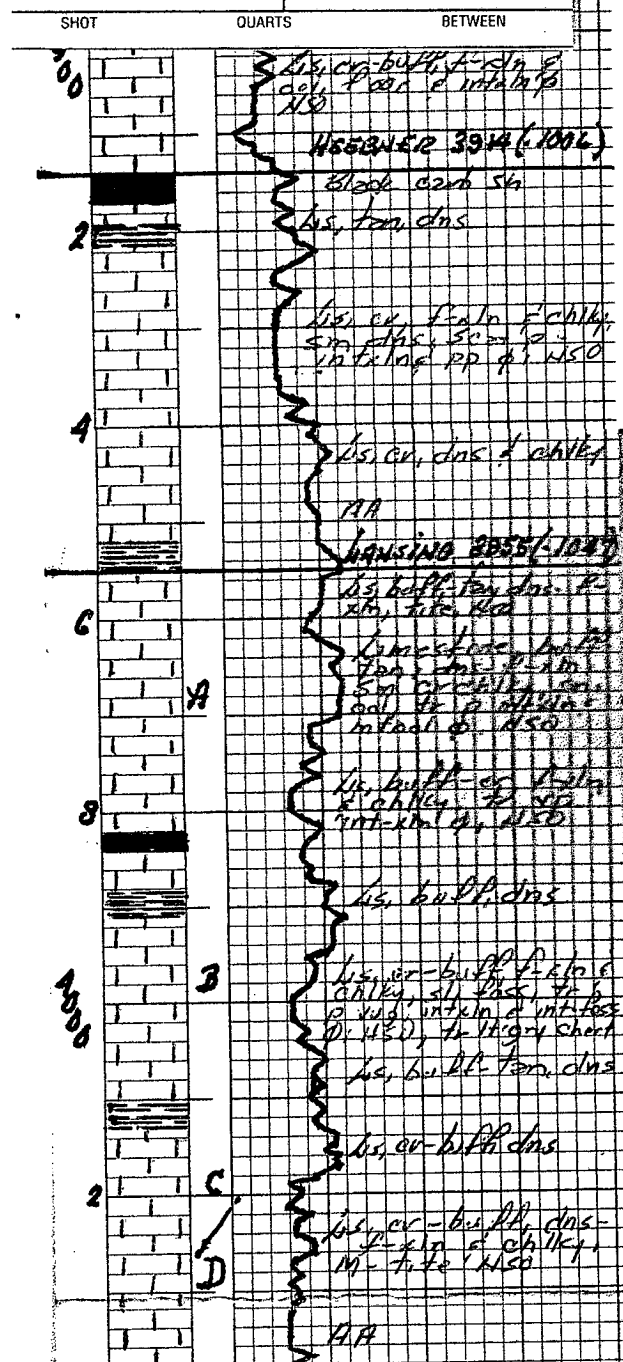 SHOT QUARTS BETWEEN
Ls, cr-buff, f-xln &
ool, poor & intxln p
NSO
HEEBNER 3914 (-1006)
Black carb sh
2
Ls, tan, dns
Ls, cr, f-xln & chlky,
sm dns, scat p
intxln & pp φ, NSO
4
Ls, cr, dns & chlky
AA
LANSING 3955 (-1047)
Ls, buff-tan, dns-f-
xln, tite, NSO
6
Limestone, buff
tan, dns-f-xln
sm cr chlky,
ool, tr p intxln-
intool φ NSO
A
Ls, buff-cr f-xln
& chlky, tr vp
int-xln φ, NSO
8
Ls, buff, dns
Ls, cr-buff f-xln &
B
chlky, sl foss, tr
p vug, intxln & intfoss
4000
φ, NSO, tr lt gry chert
Ls, buff-tan, dns
Ls, cr-buff, dns
C
2
Ls, cr-buff, dns-
f-xln & chlky,
D
M-tite, NSO
AA